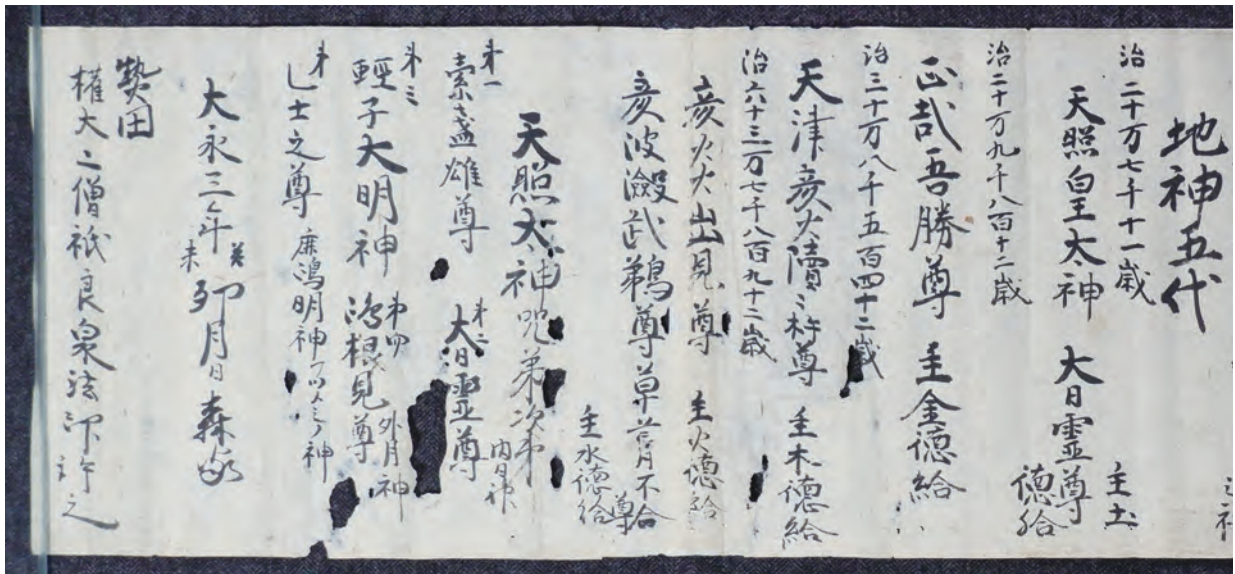 地神五代
治二十万七千十一歳
天照皇王大神 大日霊尊 主土
徳給
治二十万九千八百十二歳
正哉吾勝尊 主金徳給
治三十万八千五百四十二歳
天津彦火瓊々杵尊 主木徳給
治六十三万七千八百九十二歳
彦火火出見尊 主火徳給
彦波瀲武鵜尊草葺不合尊
主水徳給
天照太神兄弟次第
第一
素盞雄尊 第二 大日霊尊 内日神
第三
輕子大明神 第四 鴻根見尊 外月神
第
大永三年 癸未 卯月日
勢田
権大之僧祇良泉法印許之